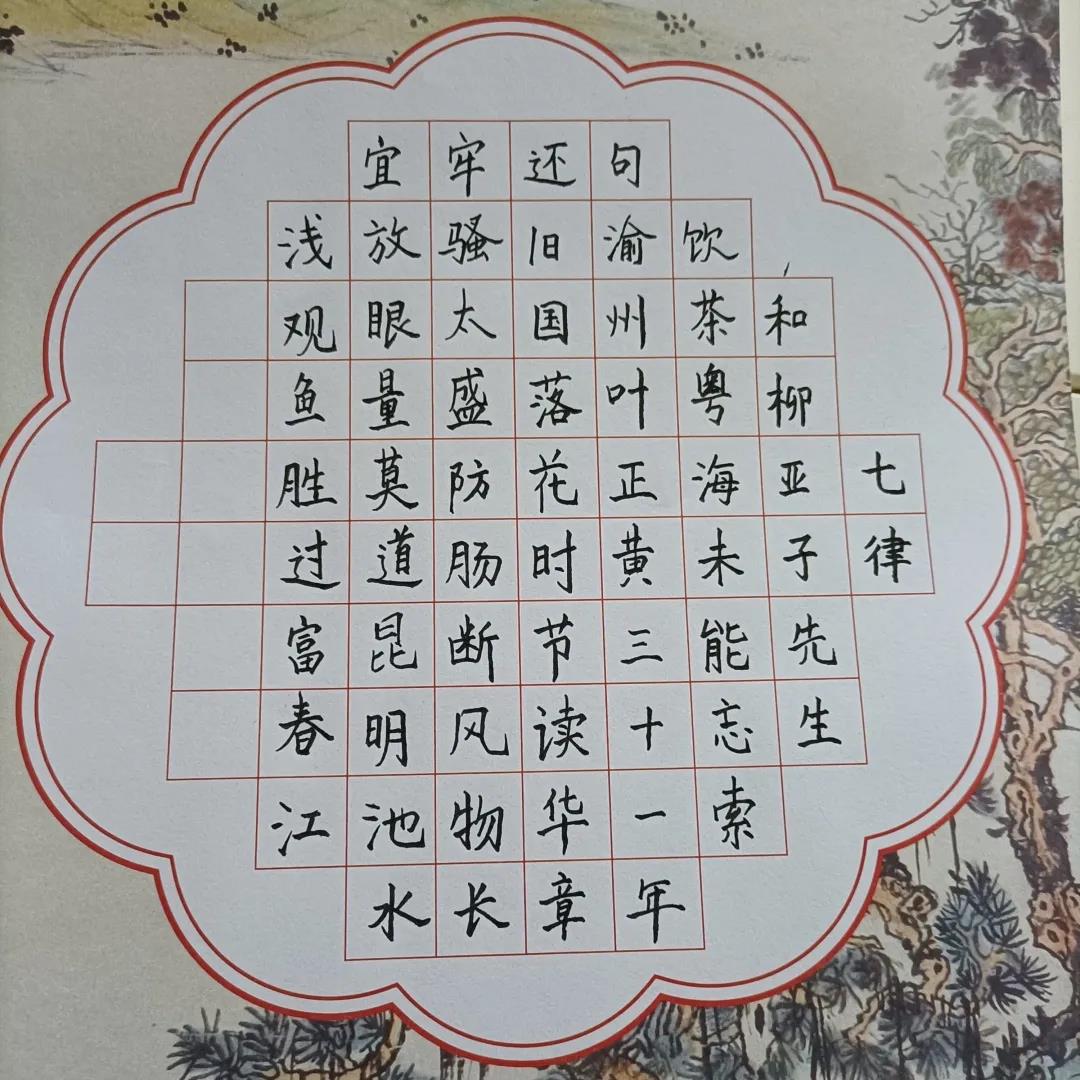 七律
和柳亚子先生
饮茶粤海未能忘索
句渝州叶正黄三十一年
还旧国落花时节读华章
牢骚太盛防肠断风物长
宜放眼量莫道昆明池水
浅观鱼胜过富春江